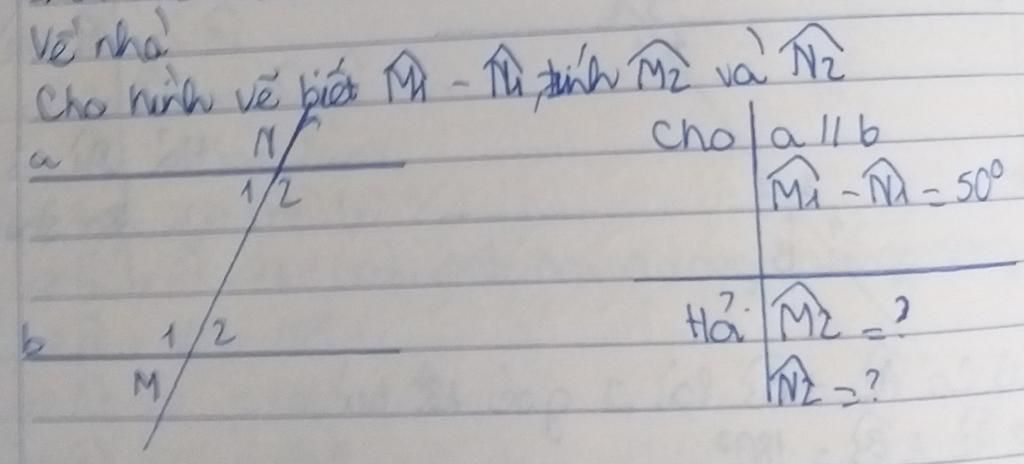 Về nhà
Cho hình vẽ biết M̂1 - N̂1, tính M̂2 và N̂2
a N
1 2
b 1 2
M
Cho a // b
M̂1 - N̂1 = 50°
Hỏi M̂2 = ?
N̂2 = ?